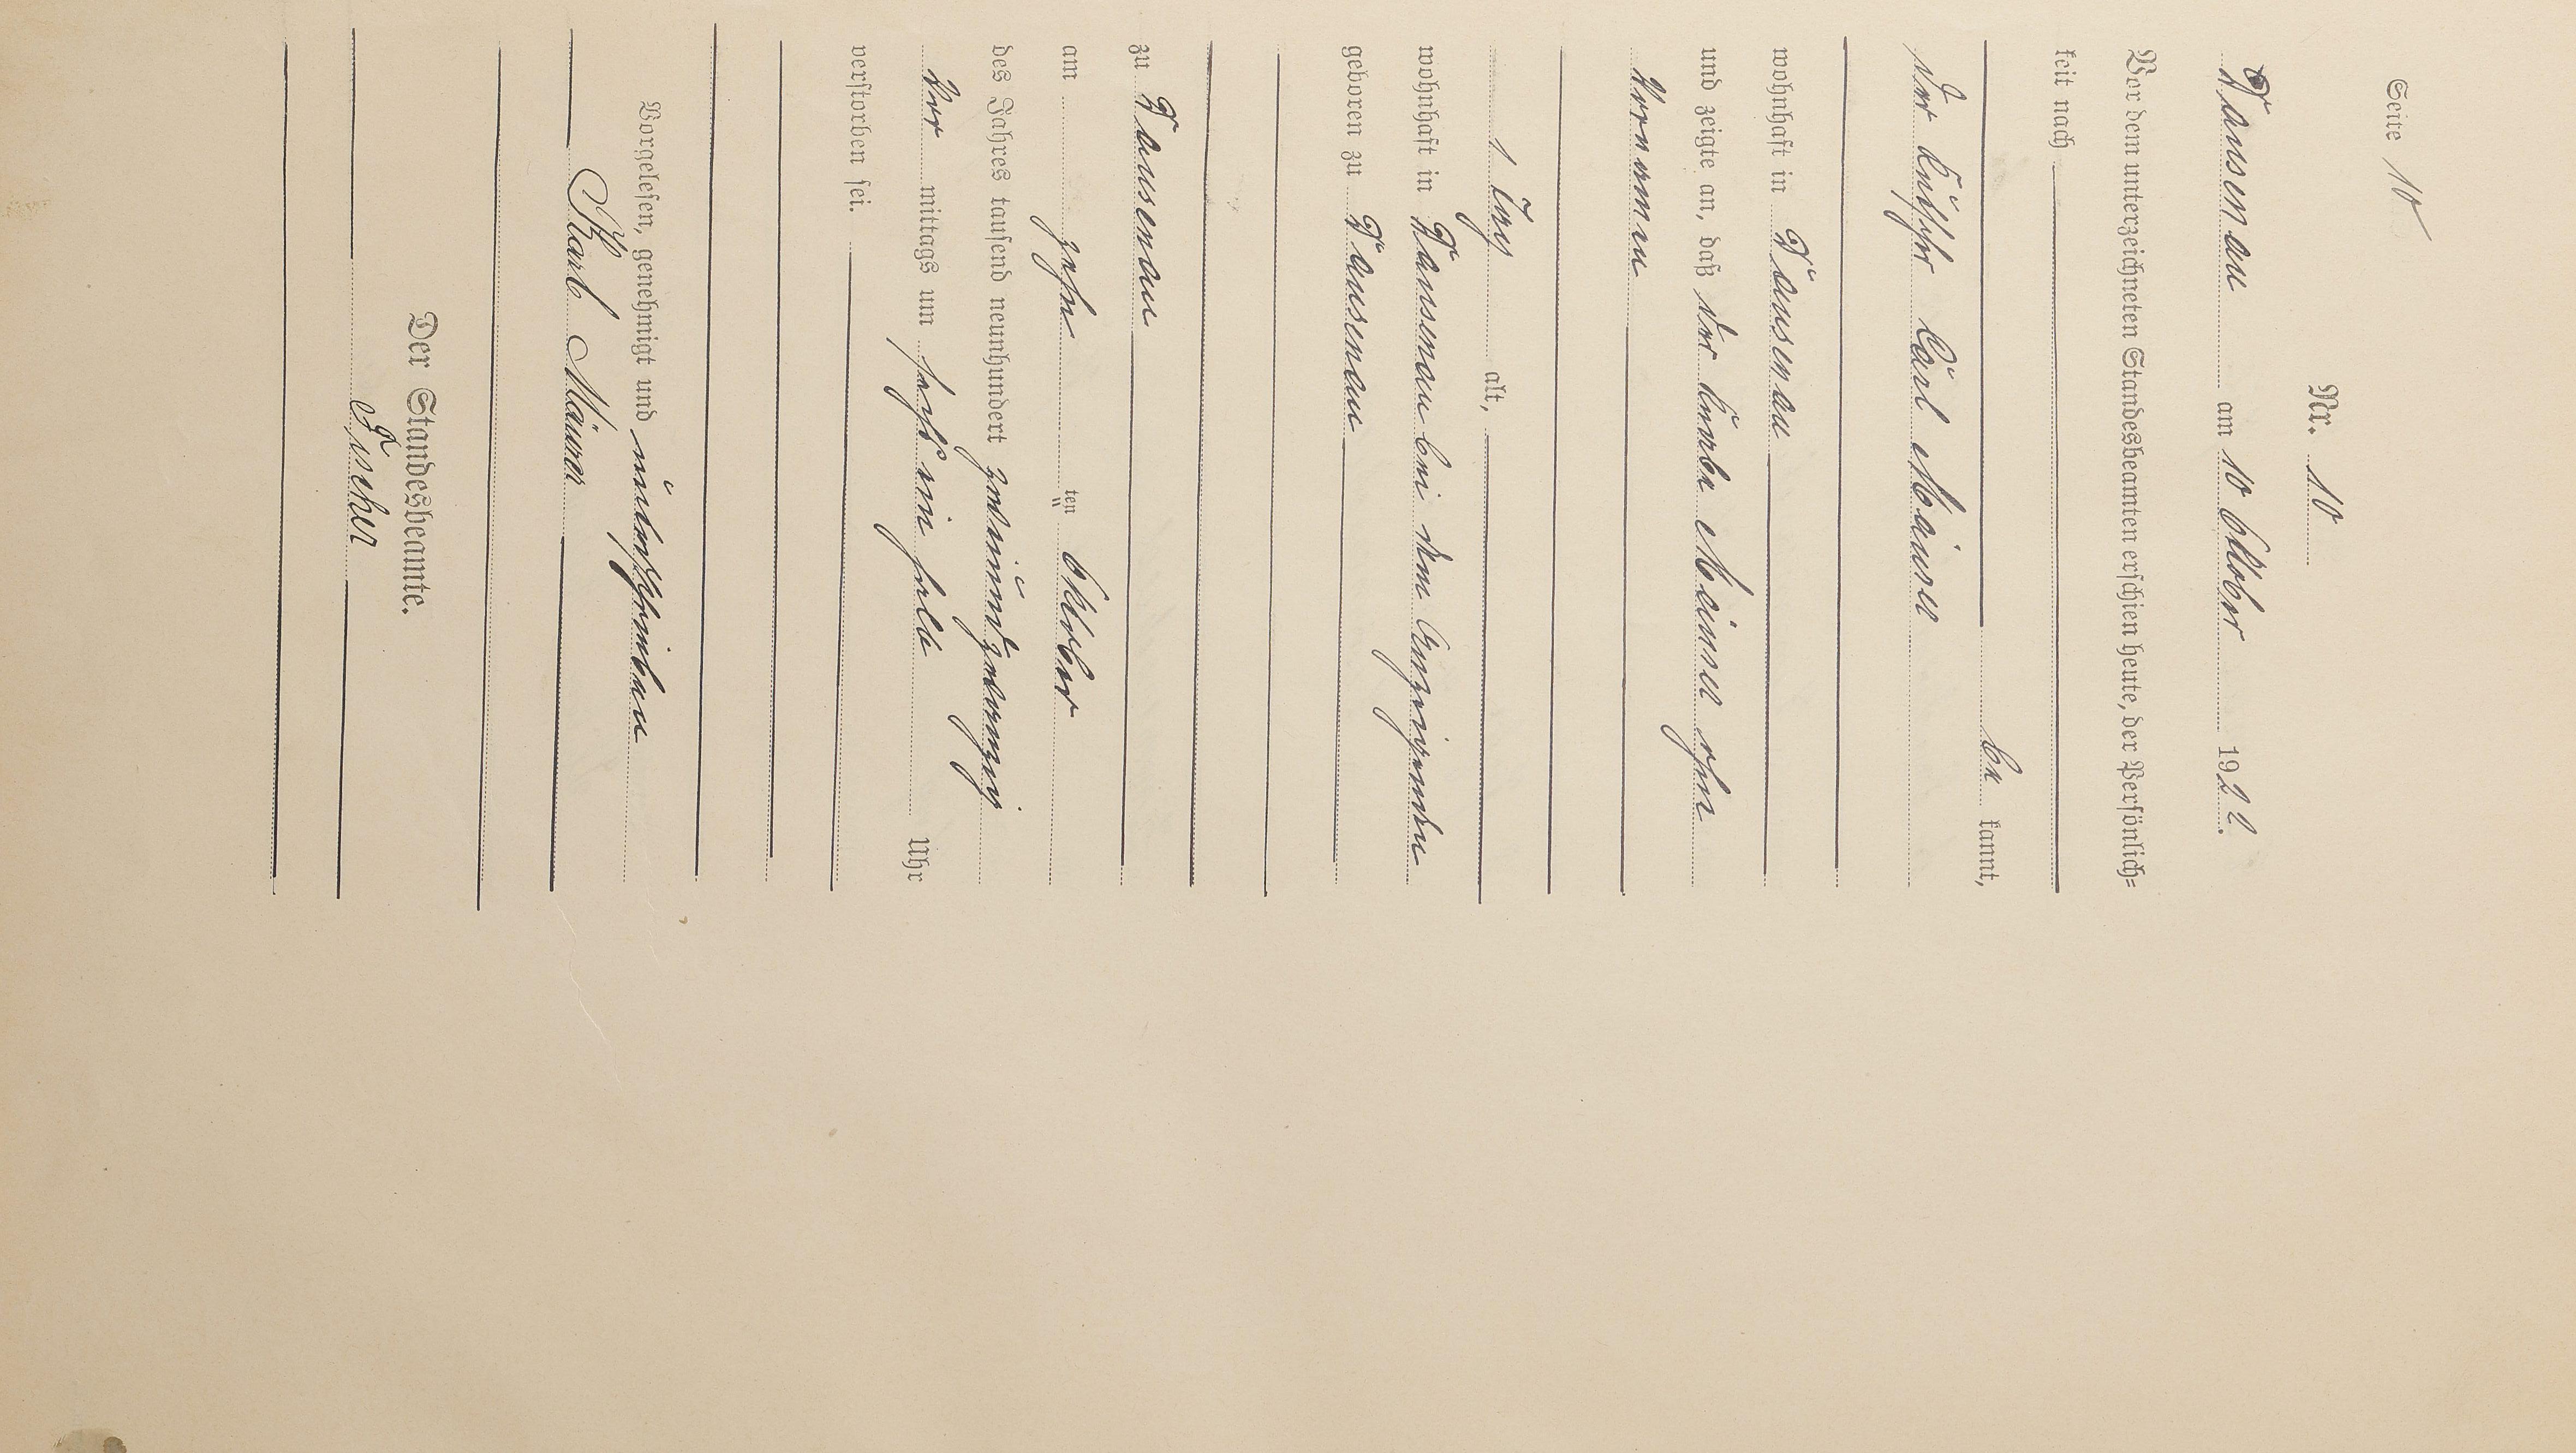 Seite 10
Nr. 10
Dausenau am 10 Oktober 1922.
Vor dem unterzeichneten Standesbeamten erschien heute, der Persönlich-
keit nach
be kannt,
der Küfer Carl Mäurer
wohnhaft in Dausenau
und zeigte an, daß der Knabe Mäurer ohn
Vornamen
1 Tag alt,
wohnhaft in Dausenau bei dem Anzeigenden
geboren zu Dausenau
zu Dausenau
am zehn ten Oktober
des Jahres tausend neunhundert zweiundzwanzig
Vor mittags um sechs ein halb Uhr
verstorben sei.
Vorgelesen, genehmigt und unterschrieben
Karl Mäurer
Der Standesbeamte.
Fischer